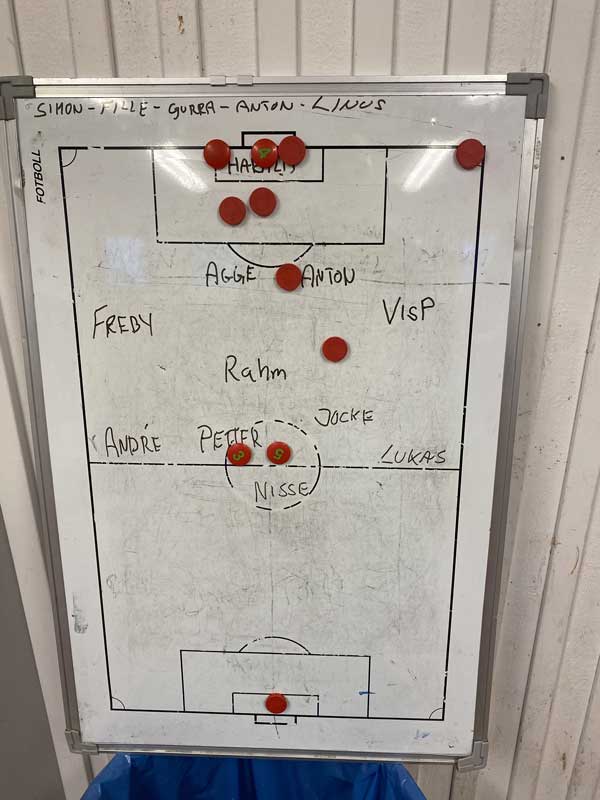 SIMON - FILLE - GURRA - ANTON - LINUS
FOTBOLL
4
AGGE ANTON
FREBY
VISP
Rahm
JOCKE
ANDRÉ
PETTER
3
5
LUKAS
NISSE